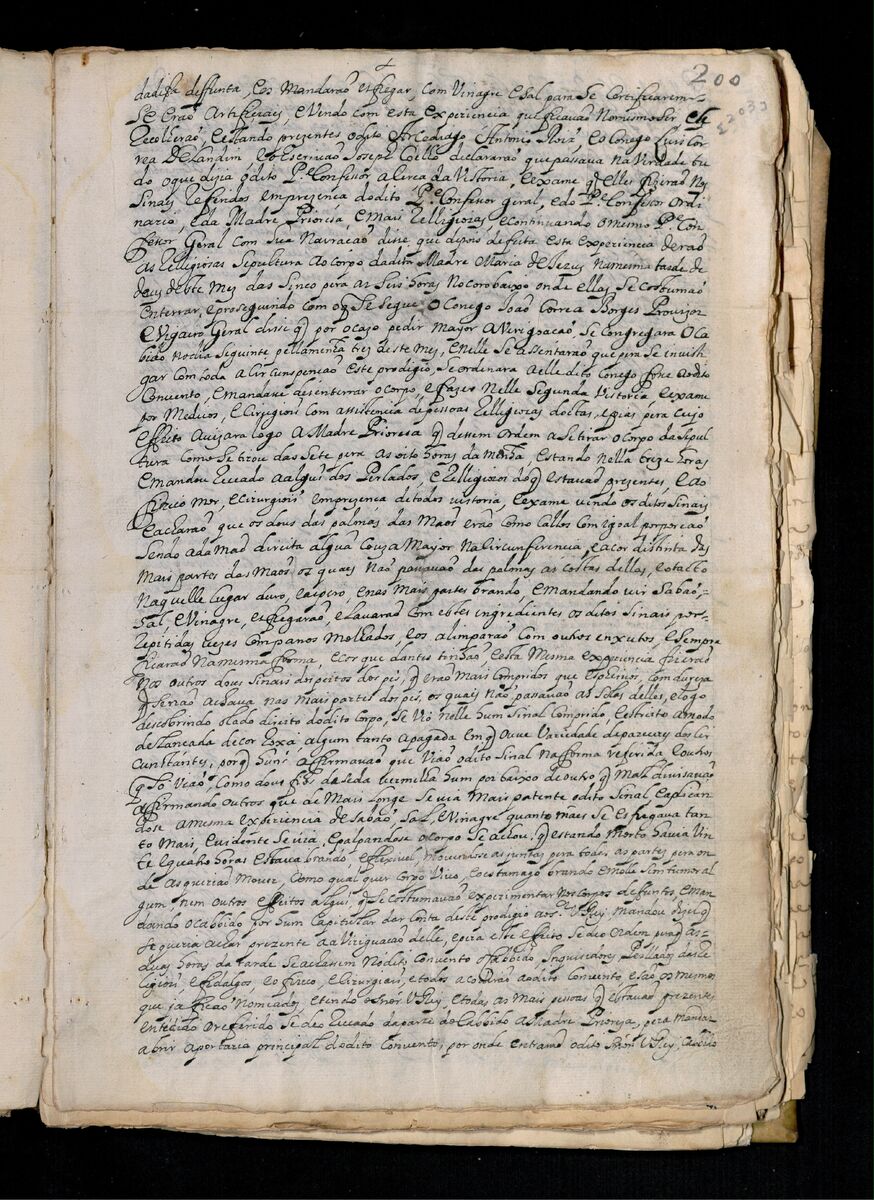 200
203
dadita deffunta, e os Mandarão esfregar, com Vinagre e Sal para se Certificarem
se erão Artificiais, e Vendo com esta experiencia que ficavão No mesmo ser
Recolherão, e estando prezentes o dito Arcediago Antonio Roiz, e o Conego Luis Cor
rea De Landim e o Escrivão Joseph Coelho declararão que passava Na Verdade tu
do o que dizia o dito P.e Confessor acerca da Vistoria, e exame q elles fizerão Nos
Sinais Referidos em prezença do dito P.e Confessor geral, e do P.e Confessor Ordi
nario, e da Madre Prioresa, e Mais Relligiosas, e continuando o mesmo P.e Con
fessor Geral com sua Narração disse que depois de feita esta experiencia derão
As Relligiosas Sepultura ao Corpo da dita Madre Maria de Jezus na mesma tarde de
deus deste Mes das Sinco pera as Seis horas No Coro baixo onde ellas se Costumão
enterrar, e proseguindo com o q se segue O Conego João Correa Borges Provizor
e Vigairo Geral disse q por o cazo pedir Mayor Averiguação, se Congregara O Ca
bido No dia Seguinte pella menhã tres deste Mes, e Nelle se assentarão que pera se investi
gar com toda a Circunspenção este prodigio, se ordenara a elle dito Conego fosse ao dito
Convento, e mandase desenterrar o Corpo, e fazer Nelle Segunda Vistoria, e exame
por Medicos, e Cirurgiois com assistencia de pessoas Relligiosas doctas, e pias pera Cujo
effeito Avizara logo A Madre Prioresa q dessem ordem a se tirar o Corpo da Sepul
tura como se tirou das Sete pera as oito horas da Menhã estando nella treze horas
e mandou Reccado a algũs dos Perlados, e Relligiozos do q estavão prezentes, e ao
fizico Mor, e Cirurgiois em prezença de todos vistoria, e exame vendo os ditos Sinais
e acharão que os dous das palmas das Mãos erão como Callos com igoal porporção
sendo a da mão direita algũa Couza Mayor Na Circunferencia, e a cor distinta das
Mais partes das Mãos os quais Não passavão das palmas as costas dellas, e o tacto
Naquelle lugar duro, e aspero, e nas Mais partes brando, e Mandando vir Sabão,
Sal, e Vinagre, esfregarão, e Lavarão com estes ingredientes os ditos Sinais por
Repitidas vezes Com panos Molhados, e os alimparão com outros enxutos, e Sempre
ficarão Na mesma forma, e Cor que dantes tinhão e esta Mesma experiencia fizerão
Nos outros dous Sinais dos peitos dos pés, q erão Mais Compridos que
q se não achava nas Mais partes dos pés, os quais Não passavão as Solas delles, e logo
descobrindo o lado direito do dito Corpo, se Vio Nelle hum Sinal Comprido, e estreito a modo
de Lançada de cor Roxa algum tanto apagada em q Ouve Variedade de pareceres dos Cir
cunstantes, porq huns affirmavão que Vião o dito Sinal Na forma referida, e outros
q Só Vião, Como dous fios de seda vermelha hum por baixo de outro q Mal devisavão
affirmando outros que de Mais Longe se via Mais patente o dito Sinal, e aplican
dose a mesma experiencia de Sabão, Sal, e Vinagre quanto mais se esfregava tan
to Mais, e vidente se via, e palpandose o corpo se achou, q estando Morto havia Vin
te e quatro horas estava brando, e flexivel, Movendose as juntas pera todas as partes pera on
de as querião Mover, Como qual quer Corpo Vivo, e o estamago brando e Molle sem tumor al
gum nem Outros effeitos algũs, q se costumavão experimentar Nos Corpos deffuntos, e Man
dando o Cabbido por hum Capitular dar Conta deste prodigio ao S.or V. Rey, Mandou dizer q
se queria achar prezente a a Viriguação delle, e pera este effeito se deo Ordem pera q as
duas horas da tarde se achassem No dito Convento o Cabbido, Inquizidores, Perlados das Re
ligiois, e fidalgos, e o fizico, e Cirurgiois, e todos acodirão ao dito Convento, e são os mesmos
que ja ficão Nomeados, e tendo o S.nor V. Rey, e todas as Mais pessoas q estavão prezentes,
entendido o referido se deo Reccado da parte do Cabbido a Madre Prioreza, pera mandar
abrir a portaria principal do dito Convento, por onde entrarão o dito S.nor V. Rey, Cabbido